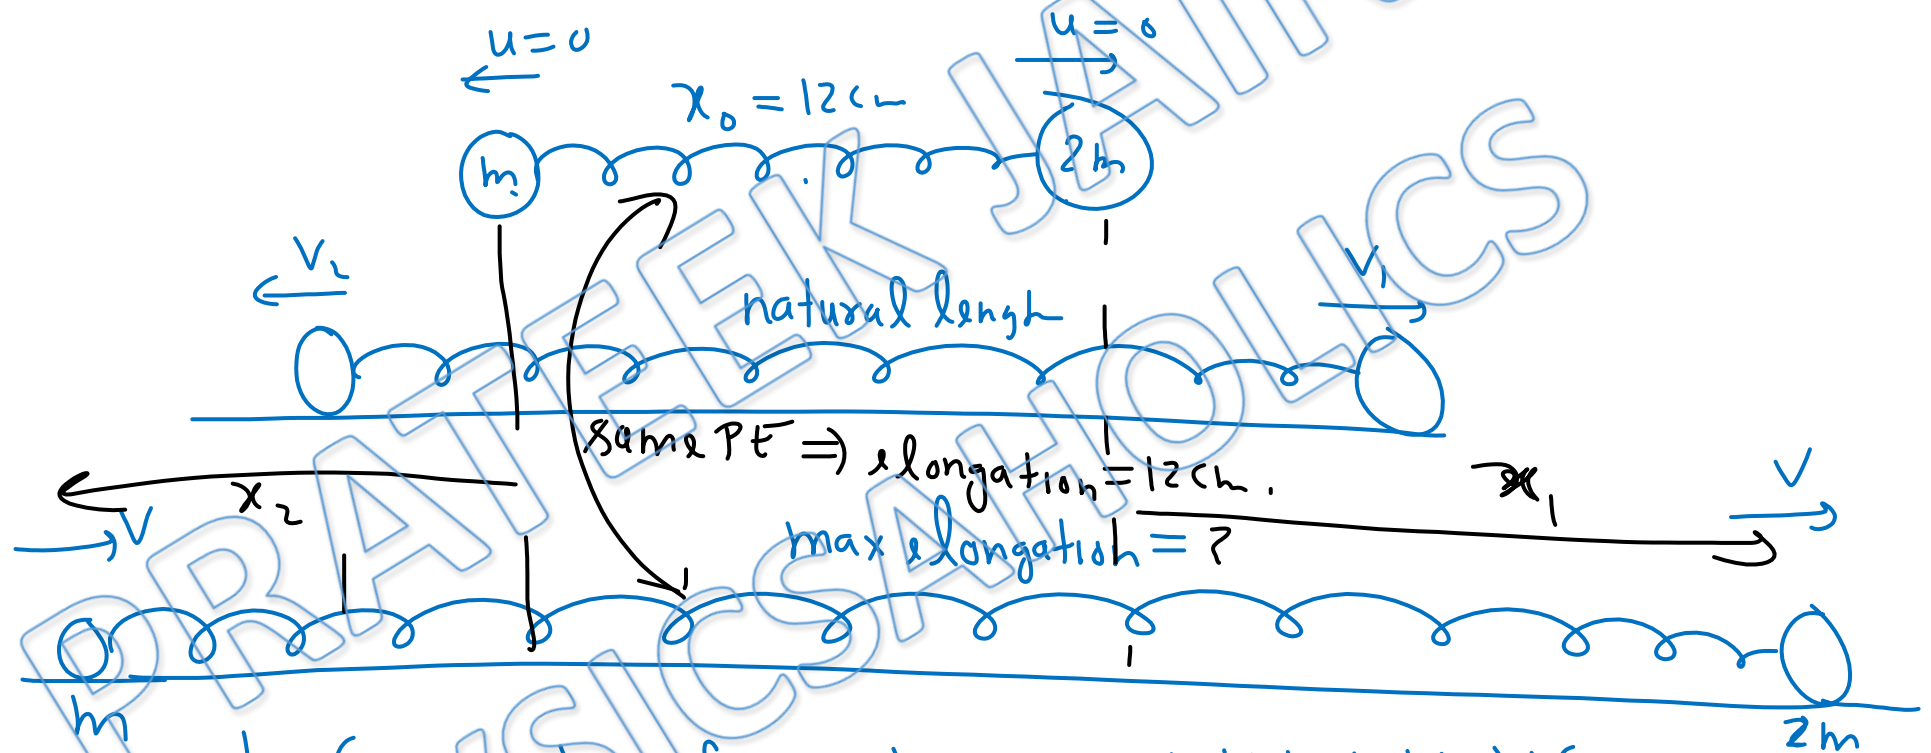 u=0
u=0
x₀ = 12cm
m
2m
V₂
V₁
natural lengh
same PE ⇒ elongation = 12cm.
x₂
x₁
V
V
max elongation = ?
m
2m
PRATEEK JAIN
PHYSICSAHOLICS